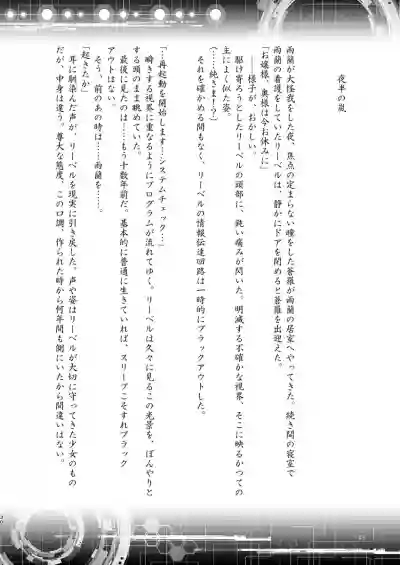 夜半の嵐
雨蘭が大怪我をした夜、焦点の定まらない瞳をした蒼羅が雨蘭の居室へやってきた。続き間の寝室で
雨蘭の看護をしていたリーベルは、静かにドアを閉めると蒼羅を出迎えた。
「お嬢様、奥様は今お休みに」
様子が、おかしい。
駆け寄ろうとしたリーベルの頭部に、鈍い痛みが閃いた。明滅する不確かな視界、そこに映るかつての
主によく似た姿。
(……純さま！？)
それを確かめる間もなく、リーベルの情報伝達回路は一時的にブラックアウトした。
「…再起動を開始します…システムチェック…」
瞬きする視界に重なるようにプログラムが流れてゆく。リーベルは久々に見るこの光景を、ぼんやりと
する頭のまま眺めていた。
最後に見たのは……もう十数年前だ。基本的に普通に生きていれば、スリープこそすれブラック
アウトはしない。
そう、前のあの時は……雨蘭を……。
「起きたか」
耳に馴染んだ声が、リーベルを現実に引き戻した。声や姿はリーベルが大切に守ってきた少女のもの
だが、中身は違う。尊大な態度、この口調、作られた時から何年間も側にいたから間違いはない。